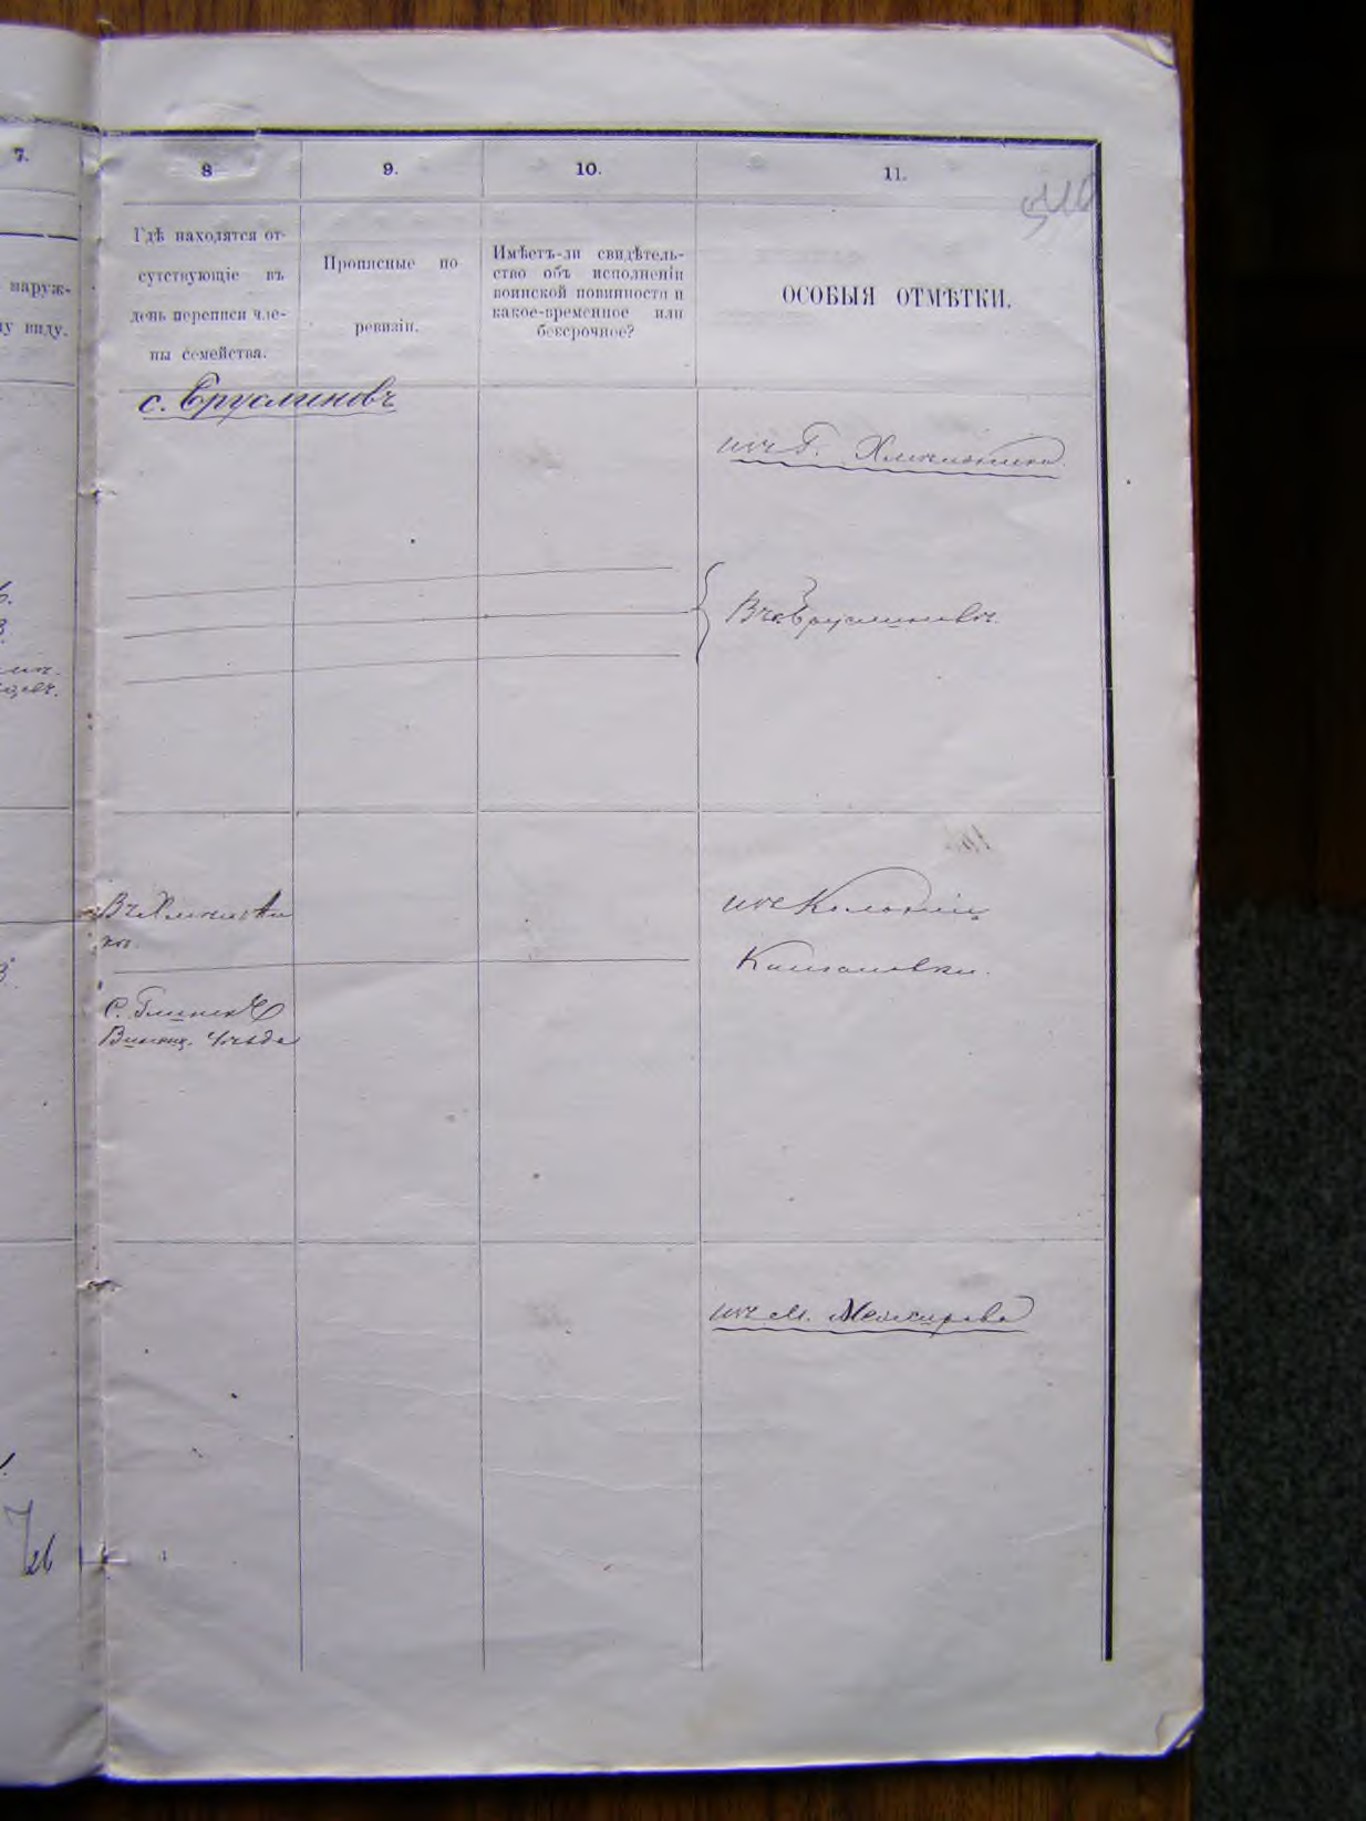 7.
8
9.
10.
11.
наруж-
му виду.
Гдѣ находятся от-
сутствующіе въ
день переписи чле-
ны семейства.
Прописные по
ревизіи.
Имѣетъ-ли свидѣтель-
ство объ исполненіи
воинской повинности и
какое-временное или
безсрочное?
ОСОБЫЯ ОТМѢТКИ.
с. Еруслиновъ
изъ Г. Хмельника
Въ с. Еруслиновъ.
Въ Хмельни
кѣ.
изъ Колоніи
С. Глинскъ
Винниц. Уѣзда
изъ м. Межирова